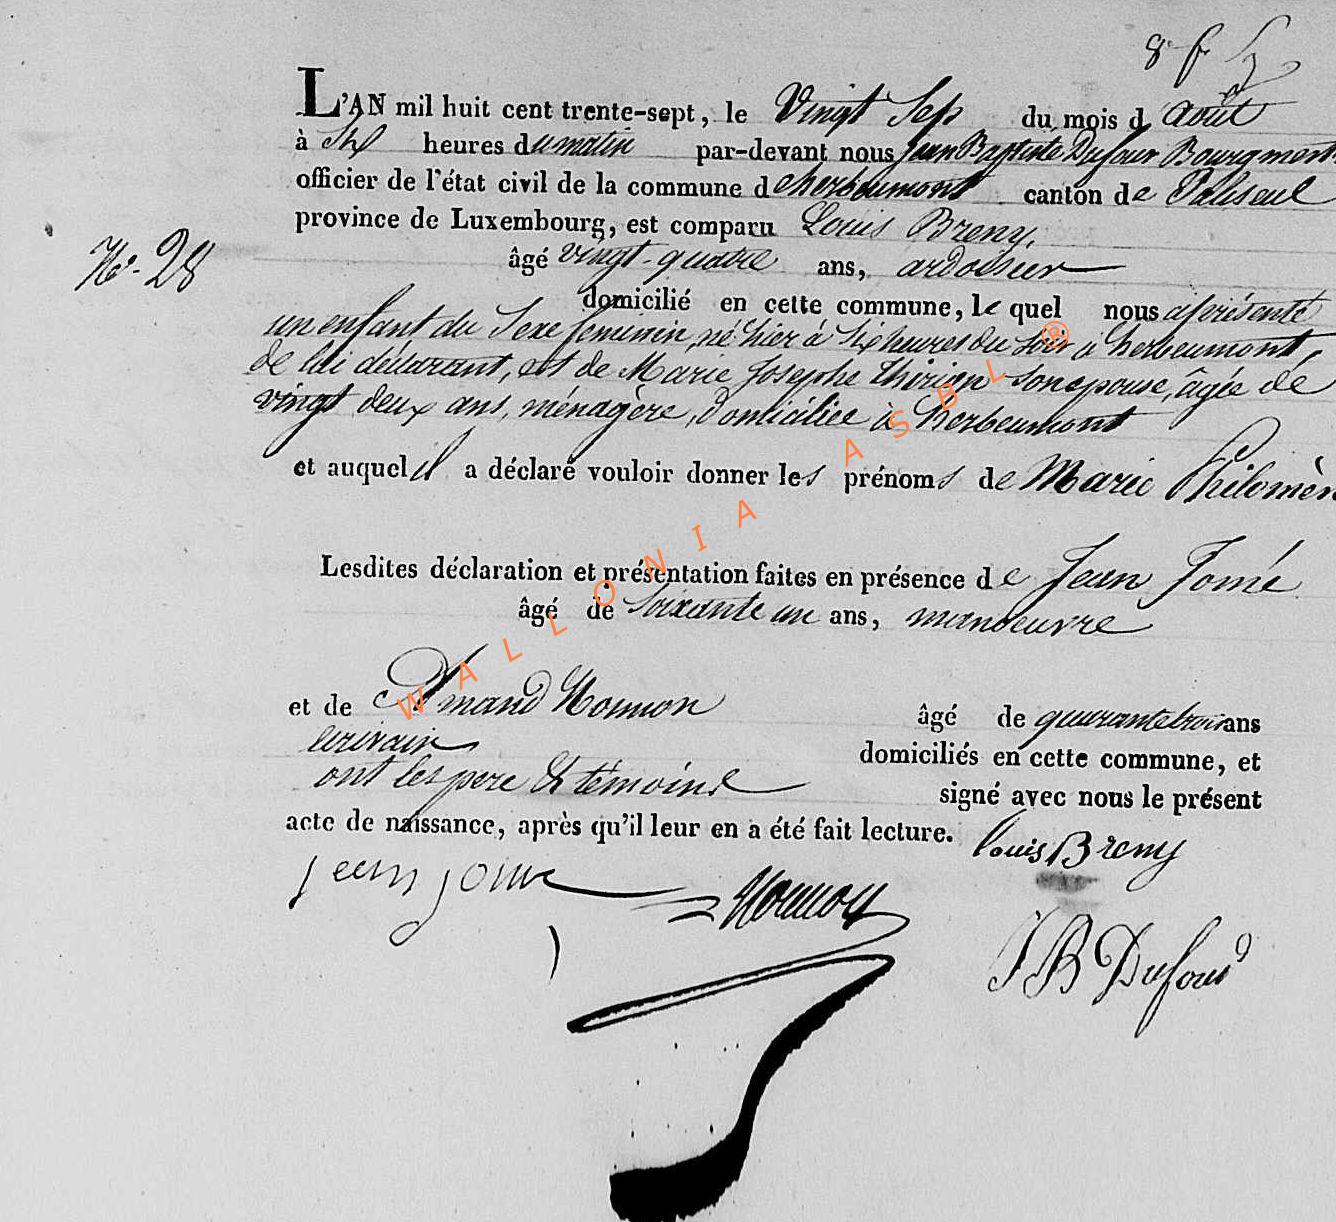 8 f
L'AN mil huit cent trente-sept, le Vingt Sep du mois d' août
à Six heures du matin par-devant nous Jean Baptiste Dufour Bourgmest
officier de l'état civil de la commune de herbeumont canton de Paliseul
province de Luxembourg, est comparu Louis Breny,
N.o 28
âgé vingt-quatre ans, ardoisier
domicilié en cette commune, le quel nous a présenté
un enfant du Sexe feminin, né hier à Six heures du soir à herbeumont,
de lui déclarant, et de Marie Josephe thirion son epouse, âgée de
vingt deux ans, ménagère, domiciliée à herbeumont
et auquel il a déclaré vouloir donner les prénoms de Marie Philomèn
Lesdites déclaration et présentation faites en présence de Jean Jomé
âgé de Soixante un ans, manoeuvre
et de Amand Nonnon âgé de quarante trois ans
écrivain domiciliés en cette commune, et
ont les pere & témoins signé avec nous le présent
acte de naissance, après qu'il leur en a été fait lecture. Louis Breny
jean jome Nonnon
J B Dufour
WALLONIA ASBL ®